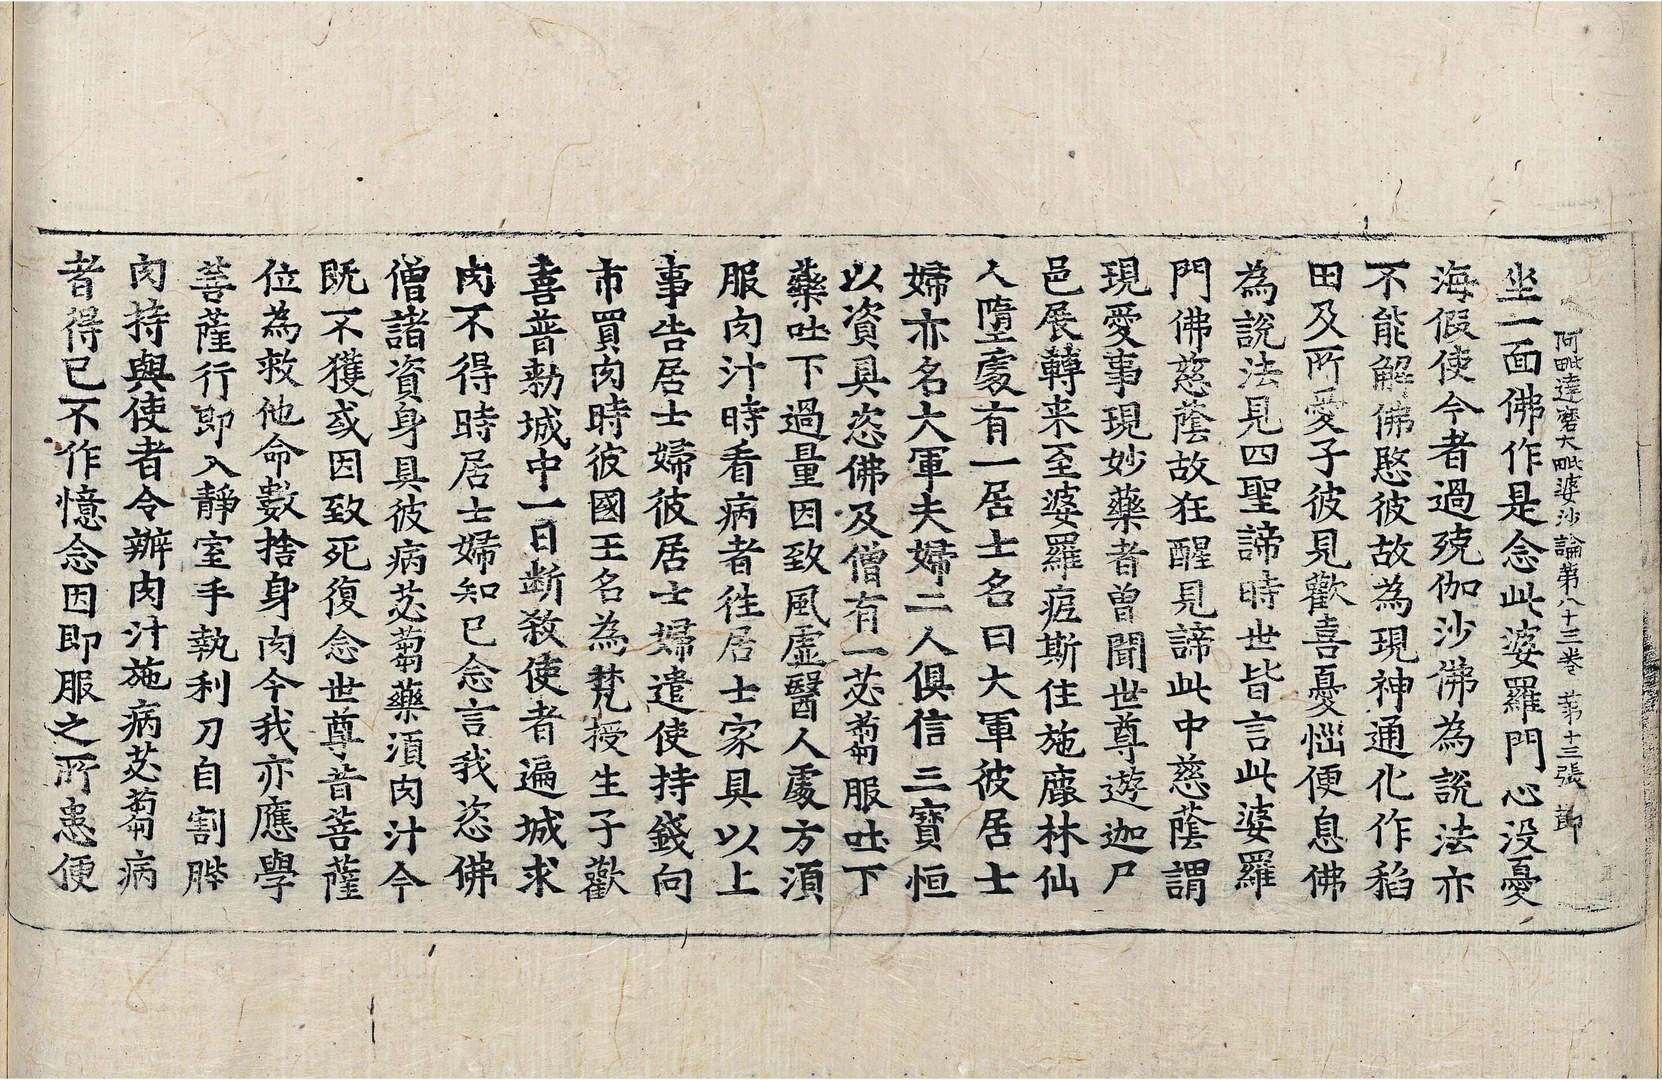 阿毗達磨大毗婆沙論第八十三卷 第十三張 節
坐一面佛作是念此婆羅門心没憂
海假使今者過殑伽沙佛為說法亦
不能解佛愍彼故為現神通化作稻
田及所愛子彼見歡喜憂惱便息佛
為說法見四聖諦時世皆言此婆羅
門佛慈蔭故狂醒見諦此中慈蔭謂
現愛事現妙藥者曾聞世尊遊迦尸
邑展轉来至婆羅痆斯住施鹿林仙
人墮處有一居士名曰大軍彼居士
婦亦名大軍夫婦二人俱信三寶恒
以資具恣佛及僧有一苾蒭服吐下
藥吐下過量因致風虛醫人處方湏
服肉汁時看病者徃居士家具以上
事告居士婦彼居士婦遣使持錢向
市買肉時彼國王名為梵授生子歡
喜普勑城中一日断殺使者遍城求
肉不得時居士婦知已念言我恣佛
僧諸資身具彼病苾蒭藥湏肉汁今
既不獲或因致死復念世尊昔菩薩
位為救他命數捨身肉今我亦應學
菩薩行即入靜室手執利刀自割髀
肉持與使者令辦肉汁施病苾蒭病
者得已不作憶念因即服之所患便